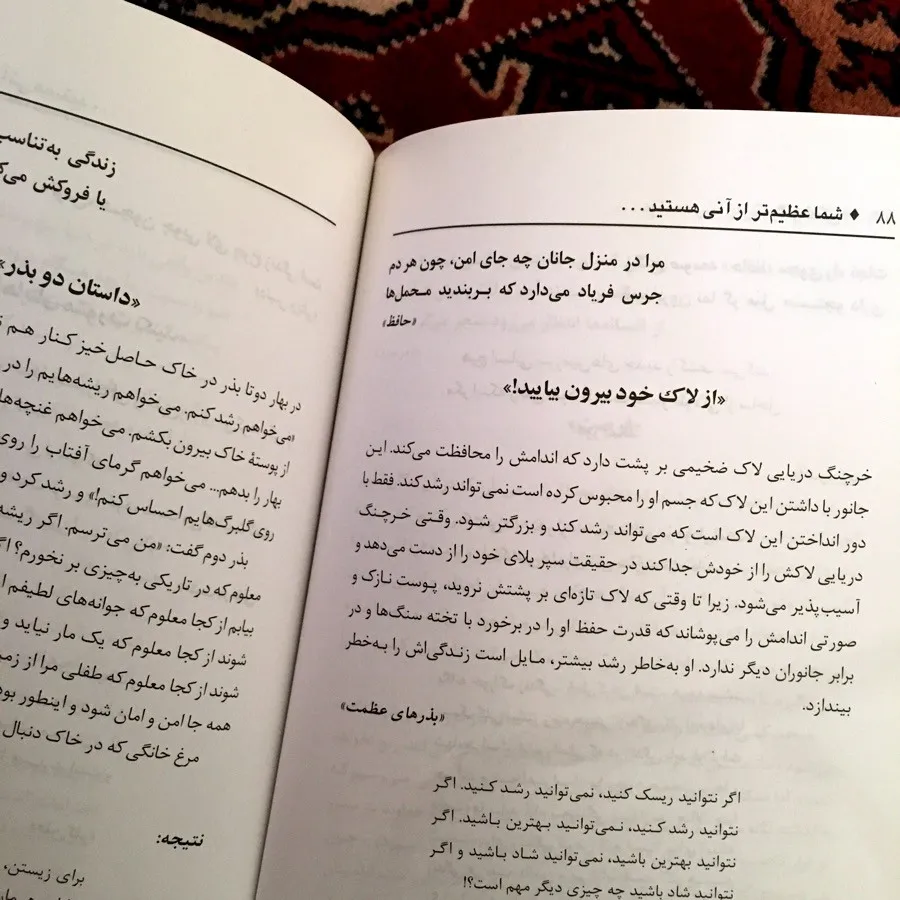 ۸۸ ♦ شما عظیم‌تر از آنی هستید...
مرا در منزل جانان چه جای امن، چون هر دم
جرس فریاد می‌دارد که بربندید محمل‌ها
«حافظ»
«از لاک خود بیرون بیایید!»
خرچنگ دریایی لاک ضخیمی بر پشت دارد که اندامش را محافظت می‌کند. این
جانور با داشتن این لاک که جسم او را محبوس کرده است نمی‌تواند رشد کند. فقط با
دور انداختن این لاک است که می‌تواند رشد کند و بزرگتر شود. وقتی خرچنگ
دریایی لاکش را از خودش جدا کند در حقیقت سپر بلای خود را از دست می‌دهد و
آسیب‌پذیر می‌شود. زیرا تا وقتی که لاک تازه‌ای بر پشتش نروید، پوست نازک و
صورتی اندامش را می‌پوشاند که قدرت حفظ او را در برخورد با تخته سنگ‌ها و در
برابر جانوران دیگر ندارد. او به‌خاطر رشد بیشتر، مایل است زندگی‌اش را به‌خطر
بیندازد.
«بذرهای عظمت»
اگر نتوانید ریسک کنید، نمی‌توانید رشد کنید. اگر
نتوانید رشد کنید، نمی‌توانید بهترین باشید. اگر
نتوانید بهترین باشید، نمی‌توانید شاد باشید و اگر
نتوانید شاد باشید چه چیزی دیگر مهم است؟!
زندگی به‌تناسب
یا فروکش
«داستان دو بذر»
در بهار دو تا بذر در خاک حاصل‌خیز کنار هم
«می‌خواهم رشد کنم. می‌خواهم ریشه‌هایم را در
از پوستهٔ خاک بیرون بکشم. می‌خواهم غنچه‌ها
بهار را بدهم... می‌خواهم گرمای آفتاب را روی
روی گلبرگ‌هایم احساس کنم!» و رشد کرد و
بذر دوم گفت: «من می‌ترسم. اگر ریشه
معلوم که در تاریکی به‌چیزی بر نخورم؟
بیابم از کجا معلوم که جوانه‌های لطیفم
شوند از کجا معلوم که یک مار نیاید و
شوند از کجا معلوم که طفلی مرا از
همه جا امن و امان شود و اینطور
مرغ خانگی که در خاک دنبال
نتیجه:
برای زیستن،